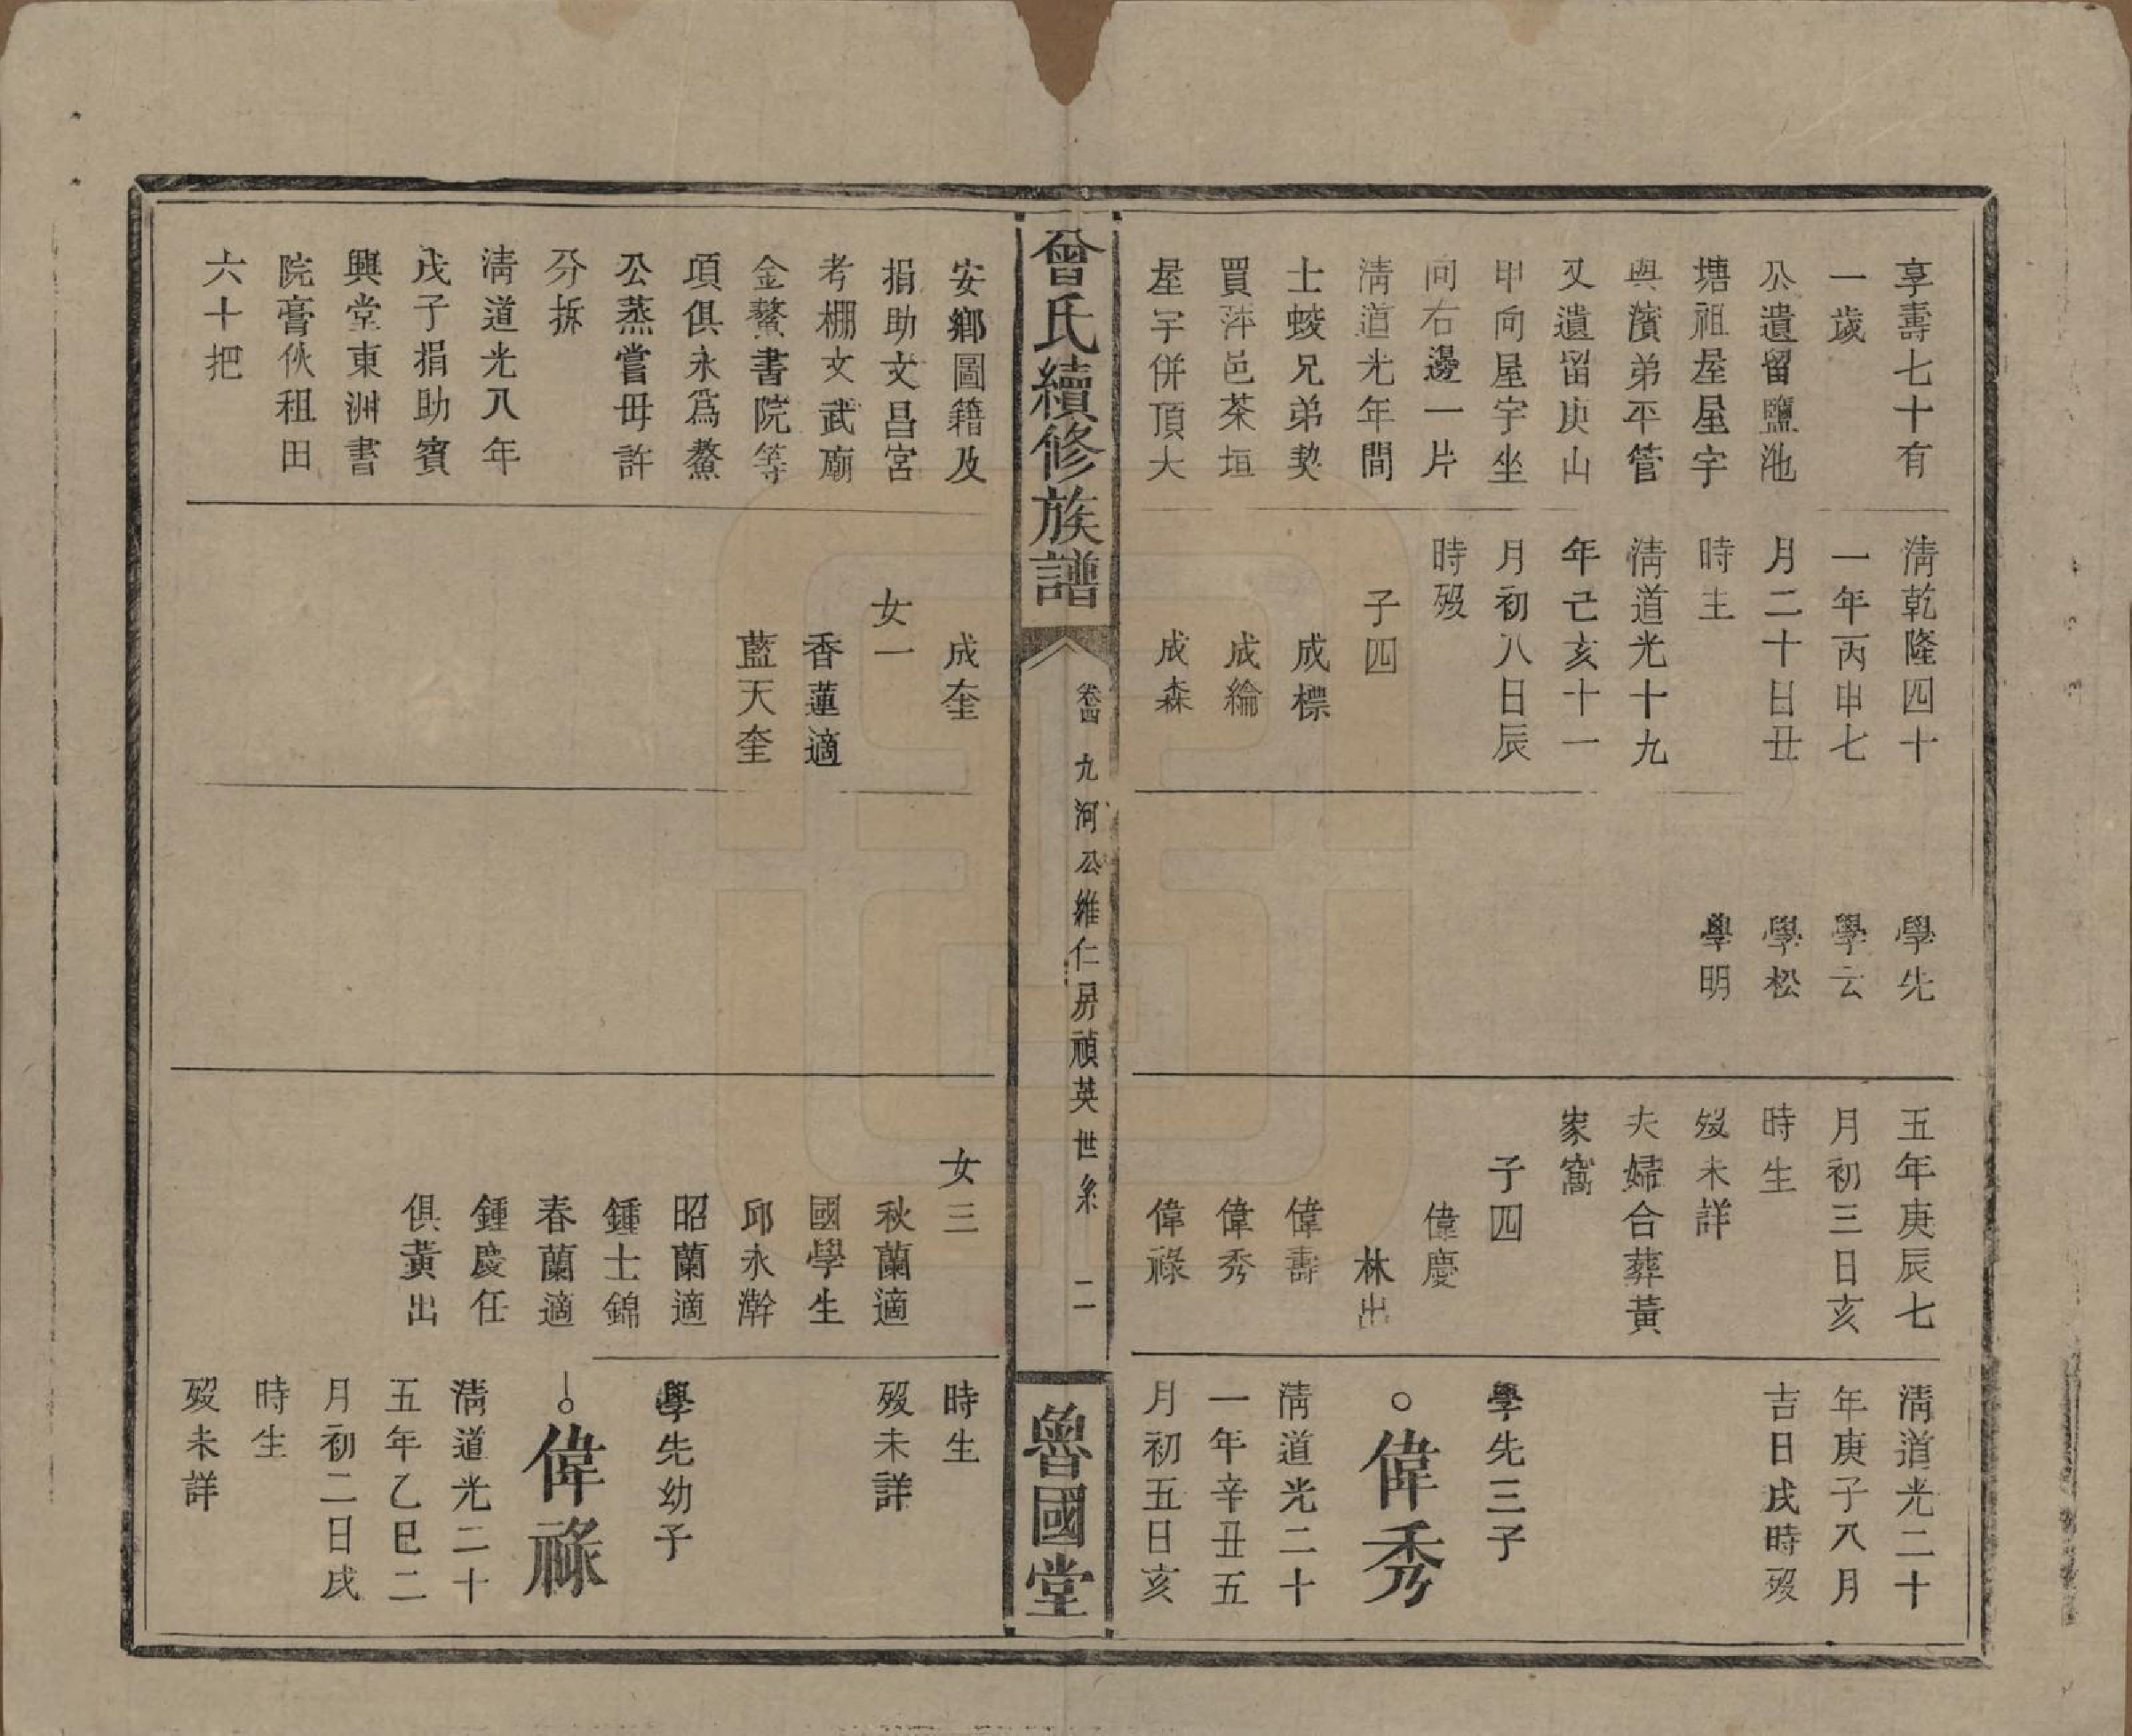 享壽七十有
一歲
公遺留鹽池
塘祖屋屋宇
與濱弟平管
又遺留庚山
甲向屋宇坐
向右邊一片
清道光年間
士崚兄弟契
買萍邑茶垣
屋宇併頂大
清乾隆四十
一年丙申七
月二十日丑
時生
清道光十九
年己亥十一
月初八日辰
時歿
子四
成標
成綸
成森
學先
學云
學松
學明
五年庚辰七
月初三日亥
時生
歿未詳
夫婦合葬黃
家窩
子四
偉慶
林出
偉壽
偉秀
偉祿
清道光二十
年庚子八月
吉日戌時歿
學先三子
○偉秀
清道光二十
一年辛丑五
月初五日亥
曾氏續修族譜
卷四 九河公維仁昺禎英世系 二
魯國堂
安鄉圖籍及
捐助文昌宮
考棚文武廟
金鰲書院等
項俱永爲鰲
公蒸嘗毋許
分拆
清道光八年
戊子捐助賓
興堂東洲書
院膏伙租田
六十把
成奎
女一
香蓮適
藍天奎
女三
秋蘭適
國學生
邱永澣
昭蘭適
鍾士錦
春蘭適
鍾慶任
俱黃出
時生
歿未詳
學先幼子
○偉祿
清道光二十
五年乙巳二
月初二日戌
時生
歿未詳